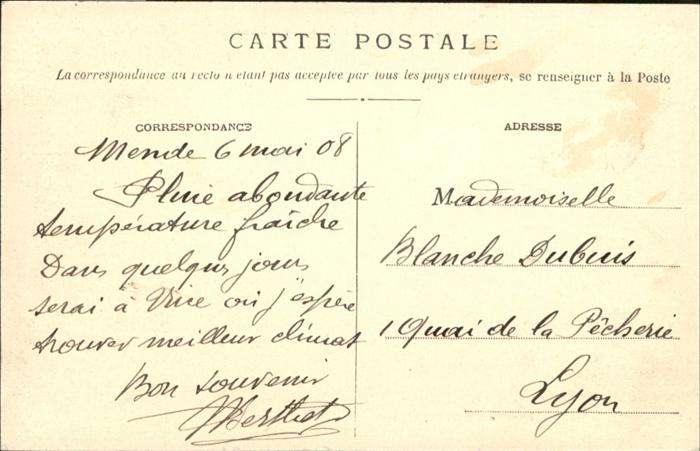 CARTE POSTALE
La correspondance au recto n'étant pas acceptée par tous les pays étrangers, se renseigner à la Poste
CORRESPONDANCE
Mende 6 mai 08
Pluie abondante
température fraîche
Dans quelques jours
serai à Nice où j'espère
trouver meilleur climat
Bon souvenir
Berthet
ADRESSE
Mademoiselle
Blanche Dubuis
1 Quai de la Pêcherie
Lyon